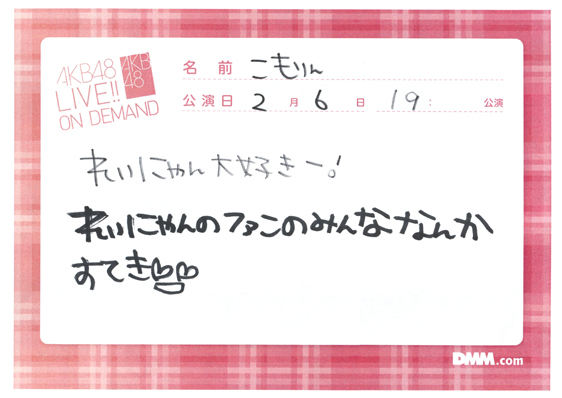 AKB48
LIVE!!
ON DEMAND
AKB
48
名前 こもりん
公演日 2月6日 19: 公演
れいにゃん大好きー!
れいにゃんのファンのみんななんか
すてき
DMM.com